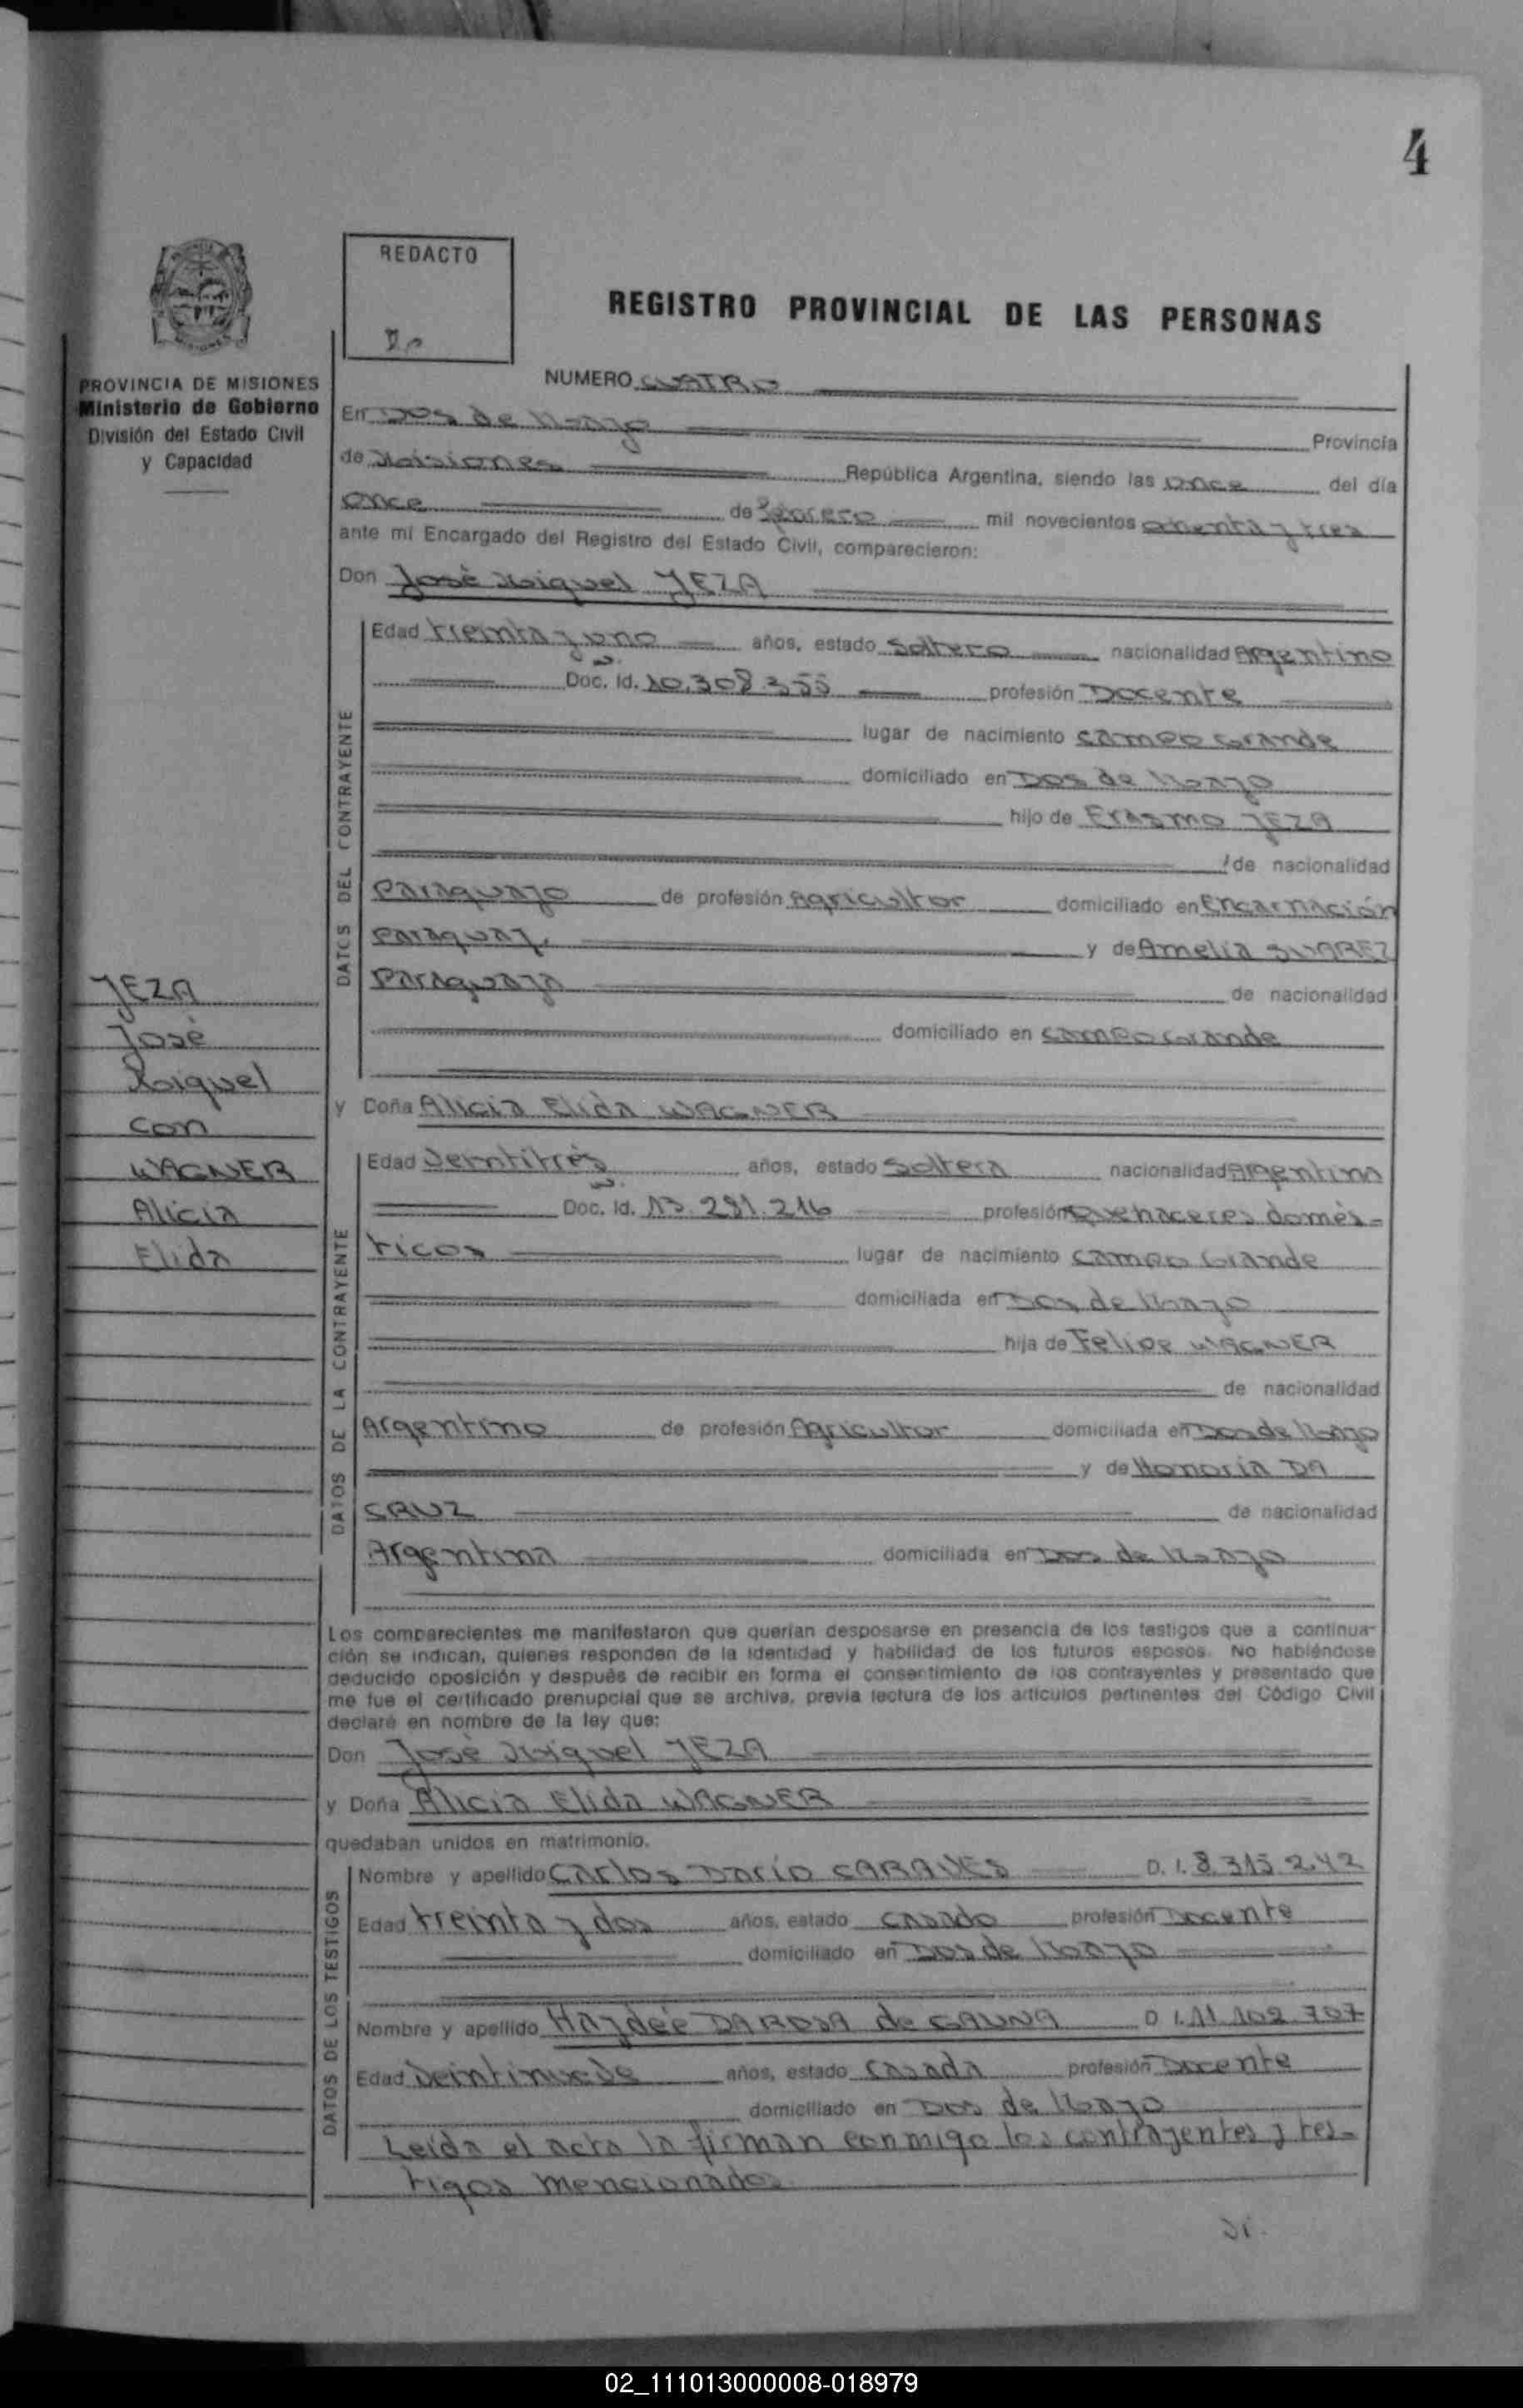 4
REDACTO
REGISTRO PROVINCIAL DE LAS PERSONAS
PROVINCIA DE MISIONES
Ministerio de Gobierno
División del Estado Civil
y Capacidad
NUMERO CUATRO
En Dos de Mayo Provincia
de Misiones República Argentina, siendo las once del día
once de Febrero mil novecientos ochenta y tres
ante mi Encargado del Registro del Estado Civil, comparecieron:
Don José Miguel YEZA
DATOS DEL CONTRAYENTE
Edad treinta y uno años, estado soltero nacionalidad Argentino
Doc. Id. 10.308.355 profesión Docente
lugar de nacimiento Campo Grande
domiciliado en Dos de Mayo
hijo de Erasmo YEZA
de nacionalidad
Paraguayo de profesión Agricultor domiciliado en Encarnación
Paraguay. y de Amelia SUAREZ
Paraguaya de nacionalidad
domiciliado en Campo Grande
YEZA
José
Miguel
con
WAGNER
Alicia
Elida
y Doña Alicia Elida WAGNER
DATOS DE LA CONTRAYENTE
Edad Veintitrés años, estado Soltera nacionalidad Argentina
Doc. Id. 13.291.216 profesión Quehaceres domés-
ticos lugar de nacimiento Campo Grande
domiciliada en Dos de Mayo
hija de Felipe WAGNER
de nacionalidad
Argentino de profesión Agricultor domiciliada en Dos de Mayo
y de Honoria DA
CRUZ de nacionalidad
Argentina domiciliada en Dos de Mayo
Los comparecientes me manifestaron que querían desposarse en presencia de los testigos que a continua-
ción se indican, quienes responden de la identidad y habilidad de los futuros esposos. No habiéndose
deducido oposición y después de recibir en forma el consentimiento de los contrayentes y presentado que
me fue el certificado prenupcial que se archiva, previa lectura de los artículos pertinentes del Código Civil
declaré en nombre de la ley que:
Don José Miguel YEZA
y Doña Alicia Elida WAGNER
quedaban unidos en matrimonio.
DATOS DE LOS TESTIGOS
Nombre y apellido Carlos Darío CARAVES D. I. 8.315.242
Edad treinta y dos años, estado casado profesión Docente
domiciliado en Dos de Mayo
Nombre y apellido Haydée DAROSA de GAUNA D I. 11.102.707
Edad Veintinueve años, estado Casada profesión Docente
domiciliado en Dos de Mayo
Leída el acta la firman conmigo los contrayentes y tes-
tigos mencionados.
02_111013000008-018979